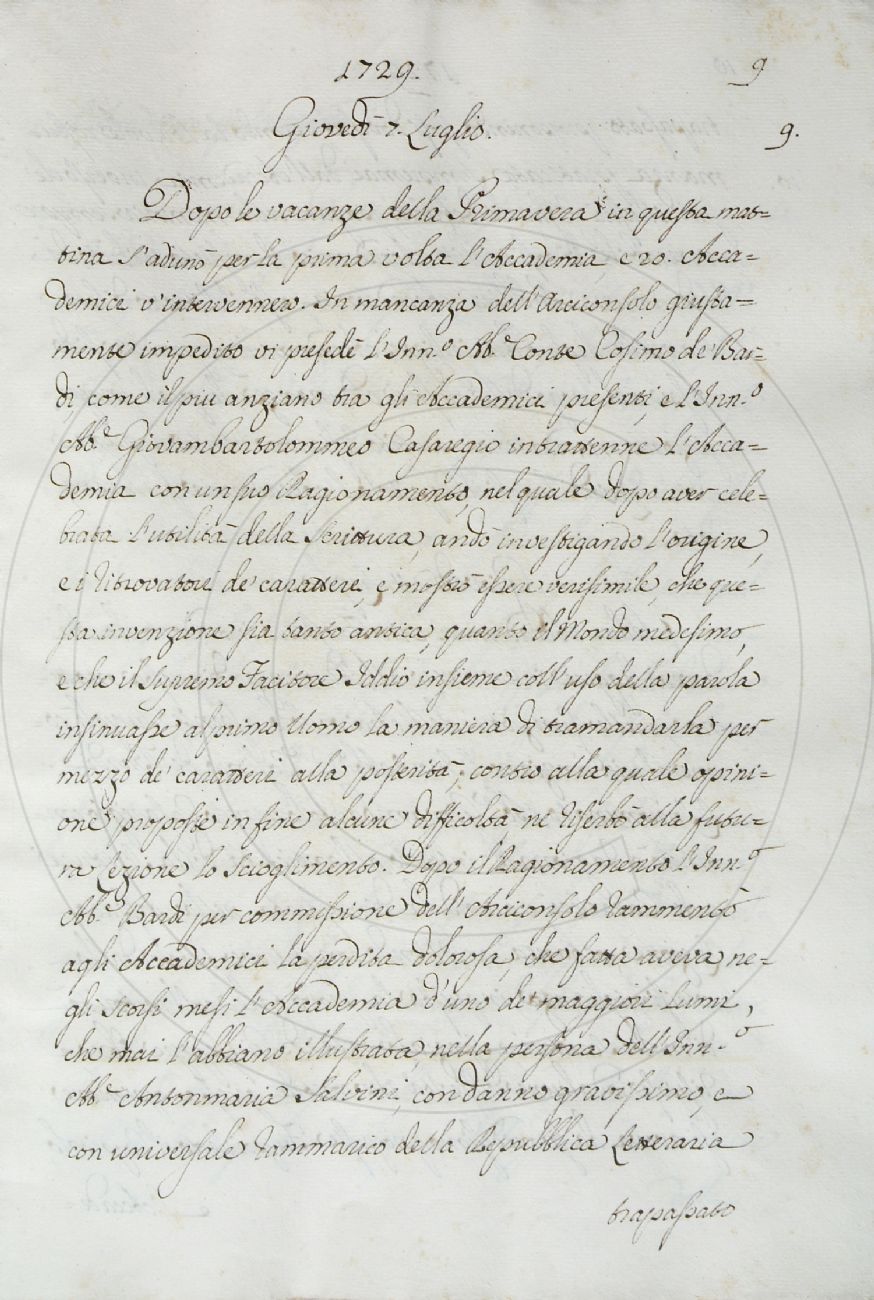 1729.
9
Giovedì 7. Luglio.
9.
Dopo le vacanze della Primavera in questa mat=
tina s'adunò per la prima volta l'Accademia, e 20. Acca=
demici v'intervennero. In mancanza dell'Arciconsolo giusta=
mente impedito vi presedè l'Inn.º Ab.e Conte Cosimo de' Bar=
di, come il più anziano tra gli Accademici presenti, e l'Inn.º
Ab.e Giovambartolommeo Casaregio intrattenne l'Acca=
demia con un suo Ragionamento, nel quale dopo aver cele=
brata l'utilità della Scrittura, andò investigando l'origine,
e i ritrovatori de' caratteri, e mostrò essere verisimile, che que=
sta invenzione sia tanto antica, quanto il Mondo medesimo,
e che il Supremo Facitore Iddio insieme coll'uso della parola
insinuasse al primo Uomo la maniera di tramandarla per
mezzo de' caratteri alla posterità; contro alla quale opini=
one propose in fine alcune difficoltà, ne riserbò alla futu=
ra Lezione lo Scioglimento. Dopo il Ragionamento l'Inn.º
Ab.e Bardi per commissione dell'Arciconsolo rammentò
agli Accademici la perdita dolorosa, che fatta aveva ne=
gli scorsi mesi l'Accademia d'uno de' maggiori Lumi,
che mai l'abbiano illustrata, nella persona dell'Inn.º
Ab.e Antonmaria Salvini, con danno gravissimo, e
con universale rammarico della Repubblica Letteraria
trapassato